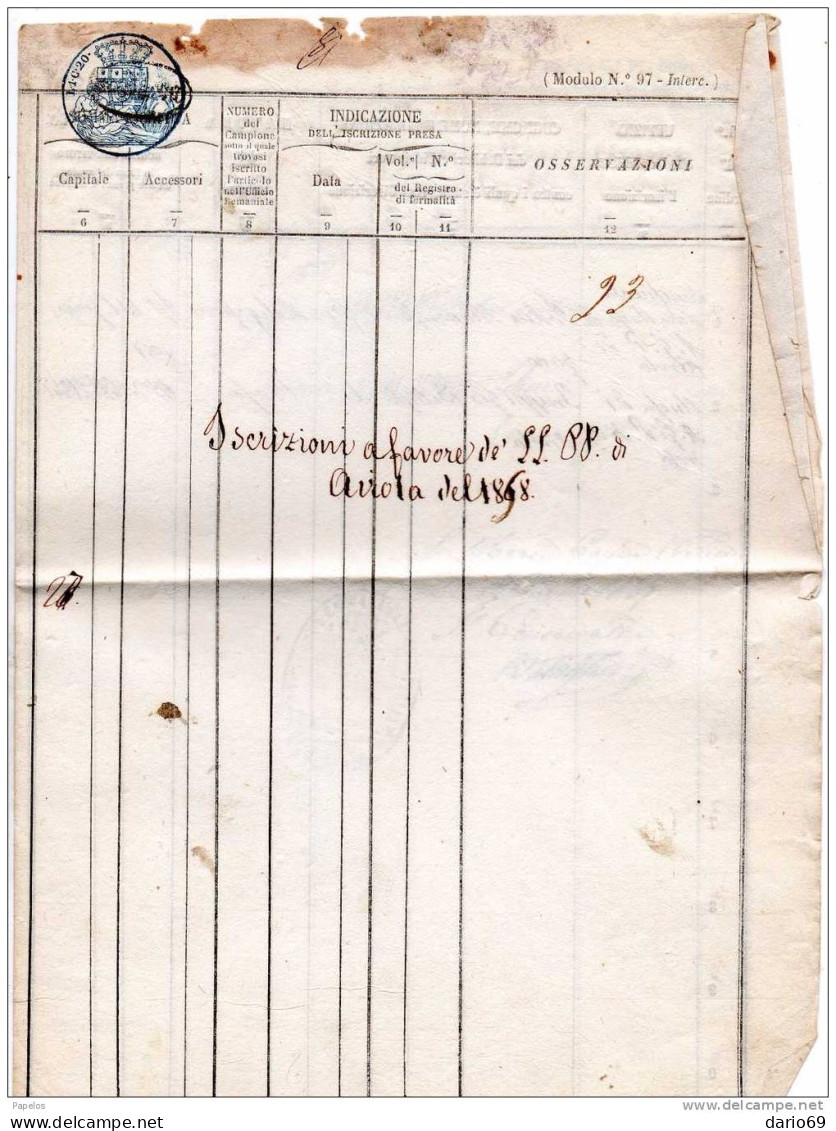 L.1.C.20.
(Modulo N.º 97 - Interc.)
Capitale
Accessori
NUMERO
del
Campione
sotto il quale
trovasi
Iscritto
l'articolo
nell'Ufficio
Demaniale
INDICAZIONE
DELL'ISCRIZIONE PRESA
Data
Vol.º N.º
del Registro
di formalità
OSSERVAZIONI
6 7 8 9 10 11 12
93
Iscrizioni a favore de' LL. PP. di
Airola del 1868.
Papelos
delcampe.net
dario69